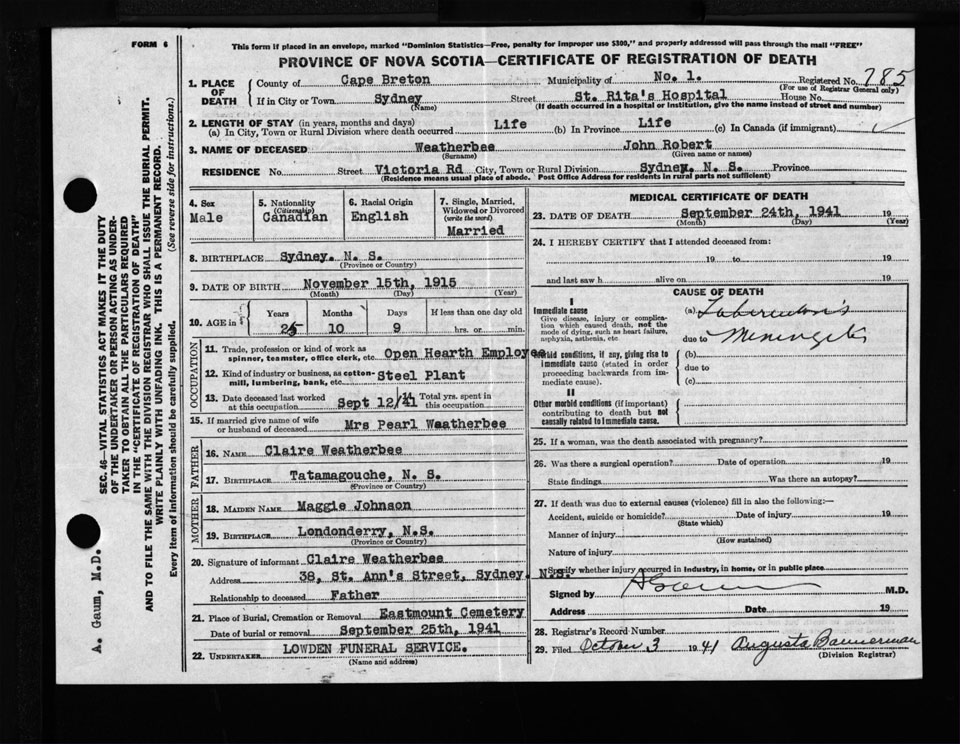 FORM 6
This form if placed in an envelope, marked "Dominion Statistics—Free, penalty for improper use $300," and properly addressed will pass through the mail "FREE"
PROVINCE OF NOVA SCOTIA—CERTIFICATE OF REGISTRATION OF DEATH
1. PLACE OF DEATH County of Cape Breton Municipality of No. 1. Registered No. 785
(For use of Registrar General only)
If in City or Town Sydney Street St. Rita's Hospital House No.
(Name) (If death occurred in a hospital or institution, give the name instead of street and number)
2. LENGTH OF STAY (in years, months and days)
(a) In City, Town or Rural Division where death occurred Life (b) In Province Life (c) In Canada (if immigrant)
3. NAME OF DECEASED Weatherbee John Robert
(Surname) (Given name or names)
RESIDENCE No. Street Victoria Rd City, Town or Rural Division Sydney. N. S. Province
(Residence means usual place of abode. Post Office Address for residents in rural parts not sufficient)
4. Sex Male
5. Nationality (Citizenship) Canadian
6. Racial Origin English
7. Single, Married, Widowed or Divorced (write the word) Married
8. BIRTHPLACE Sydney. N. S.
(Province or Country)
9. DATE OF BIRTH November 15th, 1915
(Month) (Day) (Year)
10. AGE in Years Months Days If less than one day old
25 10 9 hrs. or min.
OCCUPATION
11. Trade, profession or kind of work as spinner, teamster, office clerk, etc. Open Hearth Employee
12. Kind of industry or business, as cotton-mill, lumbering, bank, etc. Steel Plant
13. Date deceased last worked at this occupation Sept 12/41 14. Total yrs. spent in this occupation
15. If married give name of wife or husband of deceased Mrs Pearl Weatherbee
FATHER
16. NAME Claire Weatherbee
17. BIRTHPLACE Tatamagouche, N. S.
(Province or Country)
MOTHER
18. MAIDEN NAME Maggie Johnson
19. BIRTHPLACE Londonderry, N.S.
(Province or Country)
20. Signature of informant Claire Weatherbee
Address 38, St. Ann's Street, Sydney. N.S.
Relationship to deceased Father
21. Place of Burial, Cremation or Removal Eastmount Cemetery
Date of burial or removal September 25th, 1941
22. UNDERTAKER LOWDEN FUNERAL SERVICE.
(Name and address)
MEDICAL CERTIFICATE OF DEATH
23. DATE OF DEATH September 24th, 1941 19
(Month) (Day) (Year)
24. I HEREBY CERTIFY that I attended deceased from:
19 to 19
and last saw h alive on 19
CAUSE OF DEATH
I
Immediate cause
Give disease, injury or complication which caused death, not the mode of dying, such as heart failure, asphyxia, asthenia, etc.
(a) Tuberculosis
due to Meningitis
Morbid conditions, if any, giving rise to immediate cause (stated in order proceeding backwards from immediate cause).
(b)
due to
(c)
II
Other morbid conditions (if important) contributing to death but not causally related to immediate cause.
25. If a woman, was the death associated with pregnancy?
26. Was there a surgical operation? Date of operation 19
State findings Was there an autopsy?
27. If death was due to external causes (violence) fill in also the following:—
Accident, suicide or homicide? Date of injury 19
(State which)
Manner of injury
(How sustained)
Nature of injury
Specify whether injury occurred in industry, in home, or in public place
Signed by A Gaum M.D.
Address Date 19
28. Registrar's Record Number
29. Filed October 3 1941 Augusta Bannerman
(Division Registrar)
SEC. 46—VITAL STATISTICS ACT MAKES IT THE DUTY
OF THE UNDERTAKER OR PERSON ACTING AS UNDER-
TAKER TO OBTAIN ALL THE PARTICULARS REQUIRED
IN THE "CERTIFICATE OF REGISTRATION OF DEATH"
AND TO FILE THE SAME WITH THE DIVISION REGISTRAR WHO SHALL ISSUE THE BURIAL PERMIT.
WRITE PLAINLY WITH UNFADING INK. THIS IS A PERMANENT RECORD.
Every item of information should be carefully supplied. (See reverse side for instructions.)
A. Gaum, M.D.